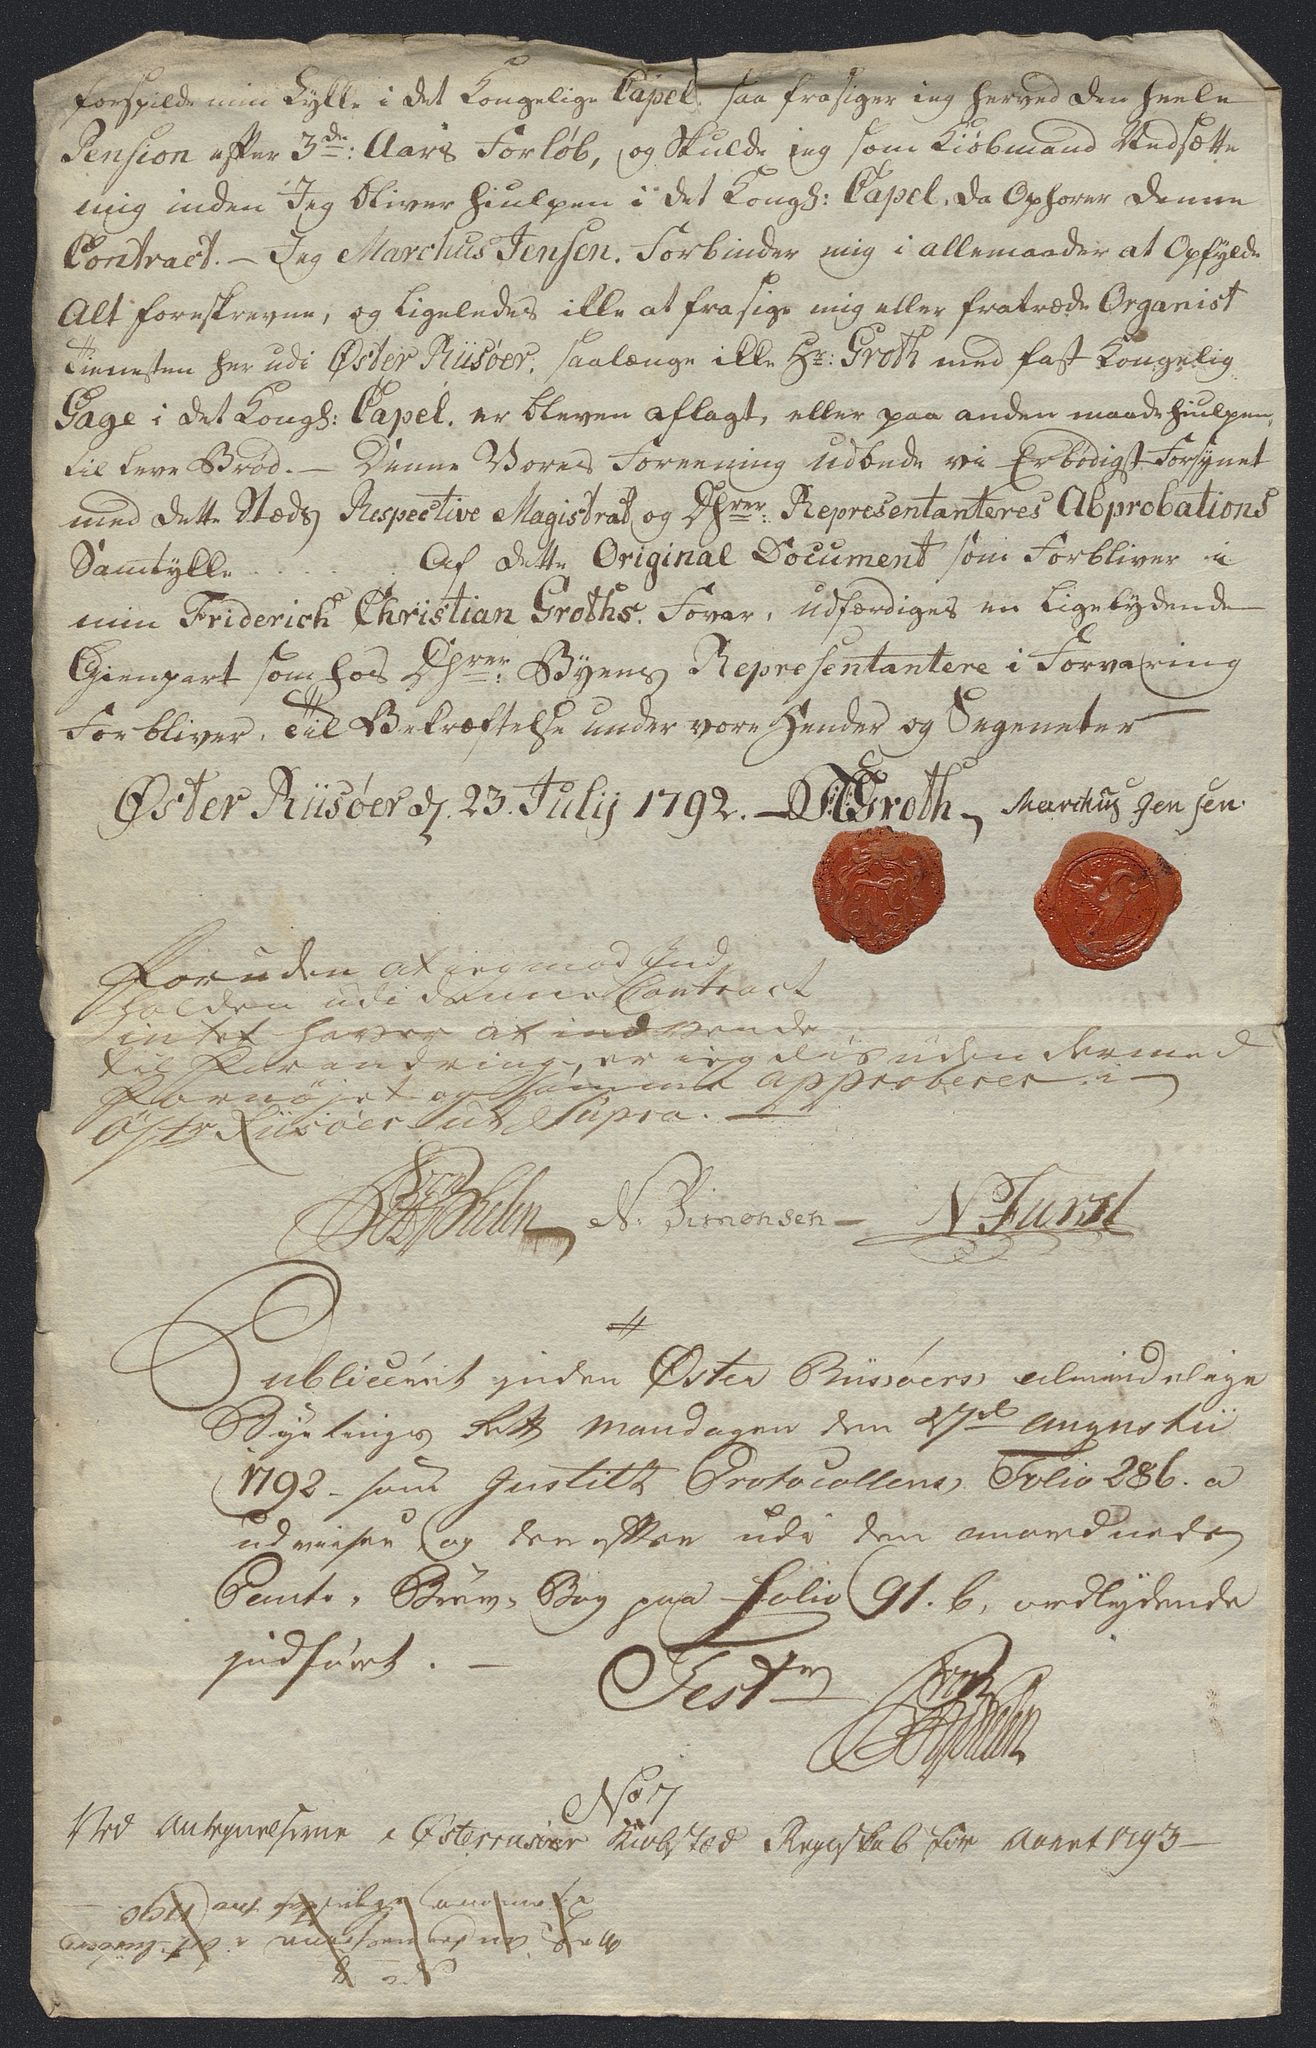 forspilde min Lykke i det Kongelige Capel. saa frasiger ieg herved den heele
Pension efter 3de: Aars Forløb, og Skulde ieg som Kiöbmand Nedsætte
mig inden Jeg bliver hiulpen i det Kongl: Capel, da Ophorer denne
Contract. — Jeg Marchus Jensen. Forbinder mig i allemaader at Opfylde
Alt foreskrevne, og Ligeledes ikke at frasige mig eller fratræde Organist
Tienesten her udi Øster Riisöer, saalænge ikke Hr: Groth med fast Kongelig
Gage i det Kongl: Capel. er bleven aflagt, eller paa anden maade hiulpen,
til Leve Brød. — Denne Vores Foreening udbede vi Erbødigst Forsynet
med dette Stæds Respective Magistrat og Dhrrer: Representanteres Abprobations
Samtykke Af dette Original Document som Forbliver i
min Friderich Christian Groths. Forvar, udfærdiges en Ligelydende
Gienpart som hos Dhrrer: Byens Representantere i Forvaring
Forbliver. Til Bekræftelse under vore Hender og Segeneter
Øster Riisöer d. 23. Julij 1792. — FCGroth, Marchus Jensen.
Foruden at ieg mod Ind
holden udi denne Contract
intet haver at indvende
til Forandring, er ieg dis uden dermed
Fornøjet og samme approberer i
Östr Riisöer ut Supra. —
N. Simonsen — N Furst
Publiceret inden Øster Riisöers almindelige
Bytings Rett Mandagen den 27de Augustii
1792 som Justits Protocollens Folio 286. a
udviser og derefter udi den anordnede
Pante-Brev-Bog paa folio 91. b, ordlydende
indført. —
Test
No 7
Ved Antegnelserne i Østerrisöer Kiøbstæd Regnskab for Aaret 1793 —